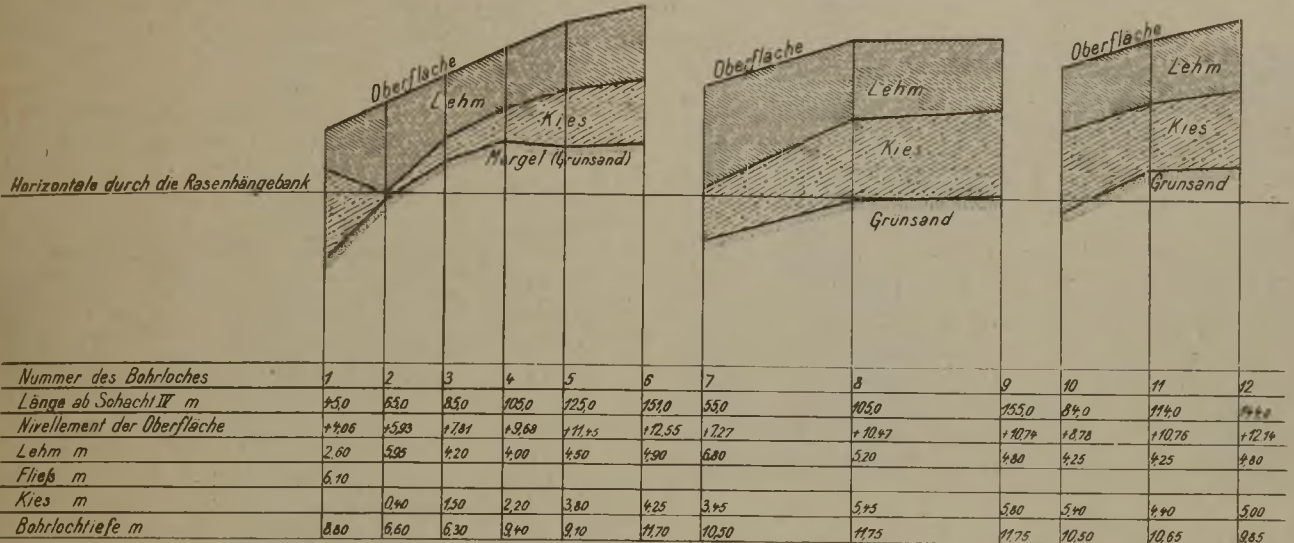 Oberfläche
Lehm
Kies
Mergel (Grünsand)
Oberfläche
Lehm
Kies
Grünsand
Oberfläche
Lehm
Kies
Grünsand
Horizontale durch die Rasenhängebank
Nummer des Bohrloches 1 2 3 4 5 6 7 8 9 10 11 12
Länge ab Schacht IV m 45,0 65,0 85,0 105,0 125,0 151,0 55,0 105,0 155,0 84,0 114,0
Nivellement der Oberfläche +4,06 +5,93 +7,81 +9,68 +11,45 +12,55 +7,27 +10,47 +10,74 +8,78 +10,76 +12,14
Lehm m 2,60 5,95 4,20 4,00 4,50 4,90 6,80 5,20 4,80 4,25 4,25 4,80
Fließ m 6,10
Kies m 0,40 1,50 2,20 3,80 4,25 3,45 5,45 5,80 5,40 4,40 5,00
Bohrlochtiefe m 8,80 6,60 6,30 9,40 9,10 11,70 10,50 11,75 11,75 10,50 10,65 9,85